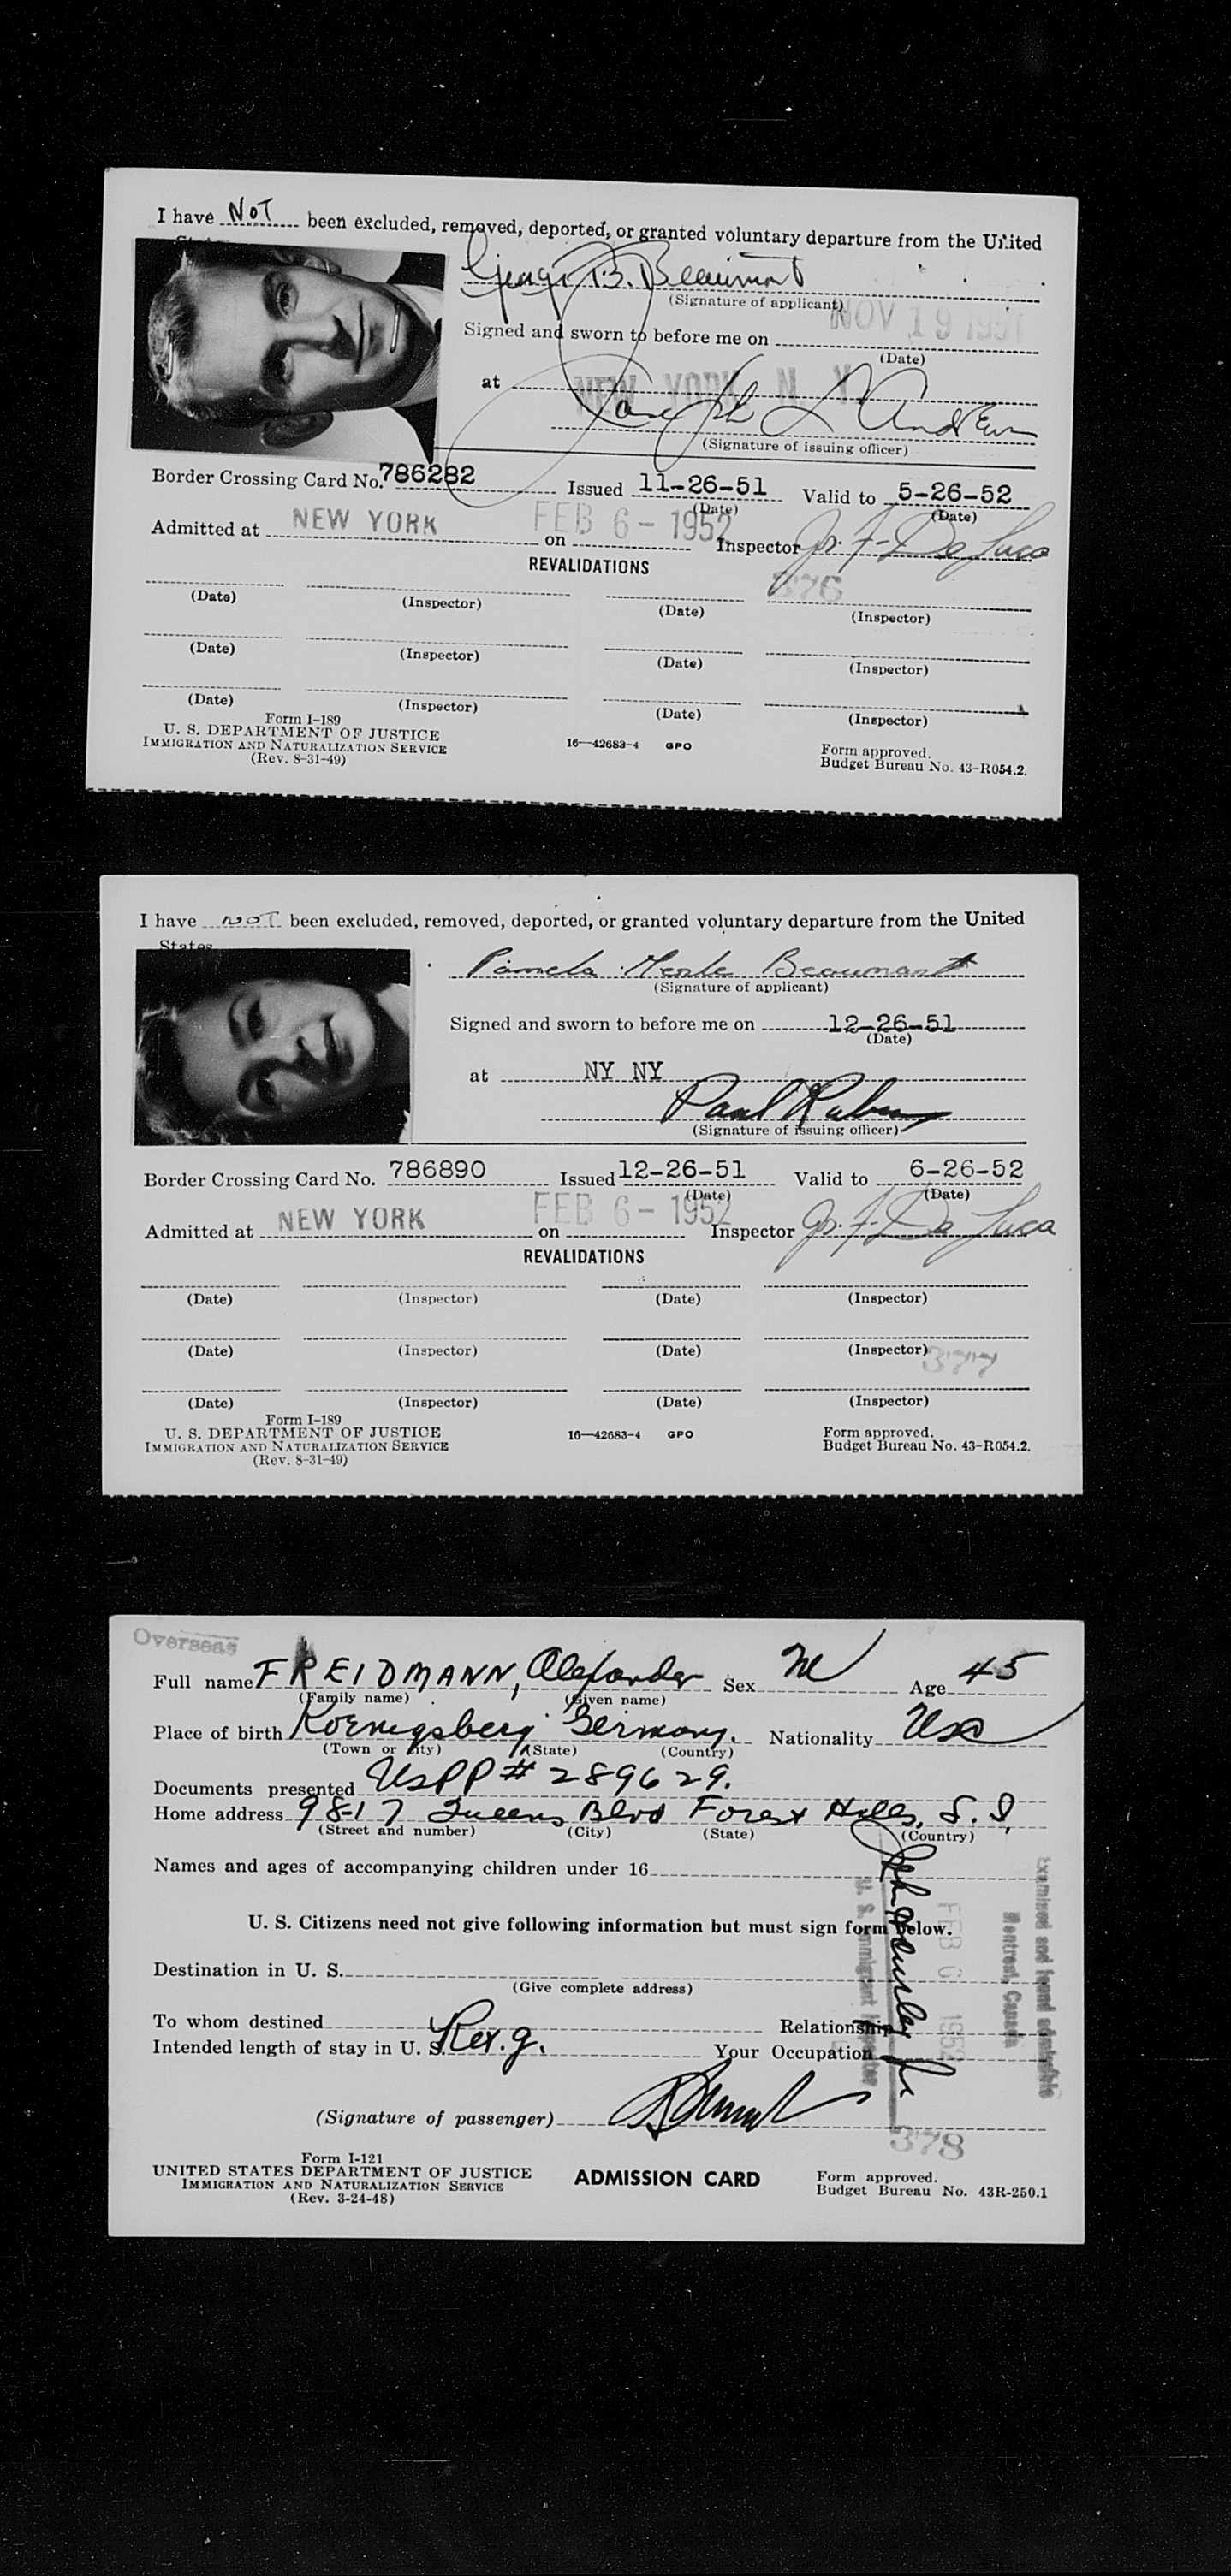 I have NOT been excluded, removed, deported, or granted voluntary departure from the United
States
George B. Beaumont
(Signature of applicant)
Signed and sworn to before me on NOV 19 1951
(Date)
at NEW YORK N. Y.
Joseph L Andrews
(Signature of issuing officer)
Border Crossing Card No. 786282 Issued 11-26-51 Valid to 5-26-52
(Date) (Date)
Admitted at NEW YORK on FEB 6 - 1952 Inspector Jr. F. De Luca
REVALIDATIONS
376
(Date) (Inspector) (Date) (Inspector)
(Date) (Inspector) (Date) (Inspector)
(Date) (Inspector) (Date) (Inspector)
Form I-189
U. S. DEPARTMENT OF JUSTICE
IMMIGRATION AND NATURALIZATION SERVICE
(Rev. 8-31-49)
16—42683-4 GPO
Form approved.
Budget Bureau No. 43-R054.2.
I have NOT been excluded, removed, deported, or granted voluntary departure from the United
States
Pamela Merle Beaumont
(Signature of applicant)
Signed and sworn to before me on 12-26-51
(Date)
at NY NY
Paul Rubin
(Signature of issuing officer)
Border Crossing Card No. 786890 Issued 12-26-51 Valid to 6-26-52
(Date) (Date)
Admitted at NEW YORK on FEB 6 - 1952 Inspector Jr. F. De Luca
REVALIDATIONS
(Date) (Inspector) (Date) (Inspector)
(Date) (Inspector) (Date) (Inspector)
377
(Date) (Inspector) (Date) (Inspector)
Form I-189
U. S. DEPARTMENT OF JUSTICE
IMMIGRATION AND NATURALIZATION SERVICE
(Rev. 8-31-49)
16—42683-4 GPO
Form approved.
Budget Bureau No. 43-R054.2.
Overseas
Full name FREIDMANN, Alexander Sex M Age 45
(Family name) (Given name)
Place of birth Koenigsberg Germany. Nationality USA
(Town or city) (State) (Country)
Documents presented USPP # 289629.
Home address 98-17 Queens Blvd Forest Hills, L. I,
(Street and number) (City) (State) (Country)
Names and ages of accompanying children under 16
U. S. Citizens need not give following information but must sign form below.
Destination in U. S.
(Give complete address)
To whom destined Relationship
Intended length of stay in U. S. Your Occupation
(Signature of passenger)
Examined and found admissible
Montreal, Canada
FEB 6 1952
U. S. Immigrant Inspector
378
Form I-121
UNITED STATES DEPARTMENT OF JUSTICE
IMMIGRATION AND NATURALIZATION SERVICE
(Rev. 3-24-48)
ADMISSION CARD
Form approved.
Budget Bureau No. 43R-250.1